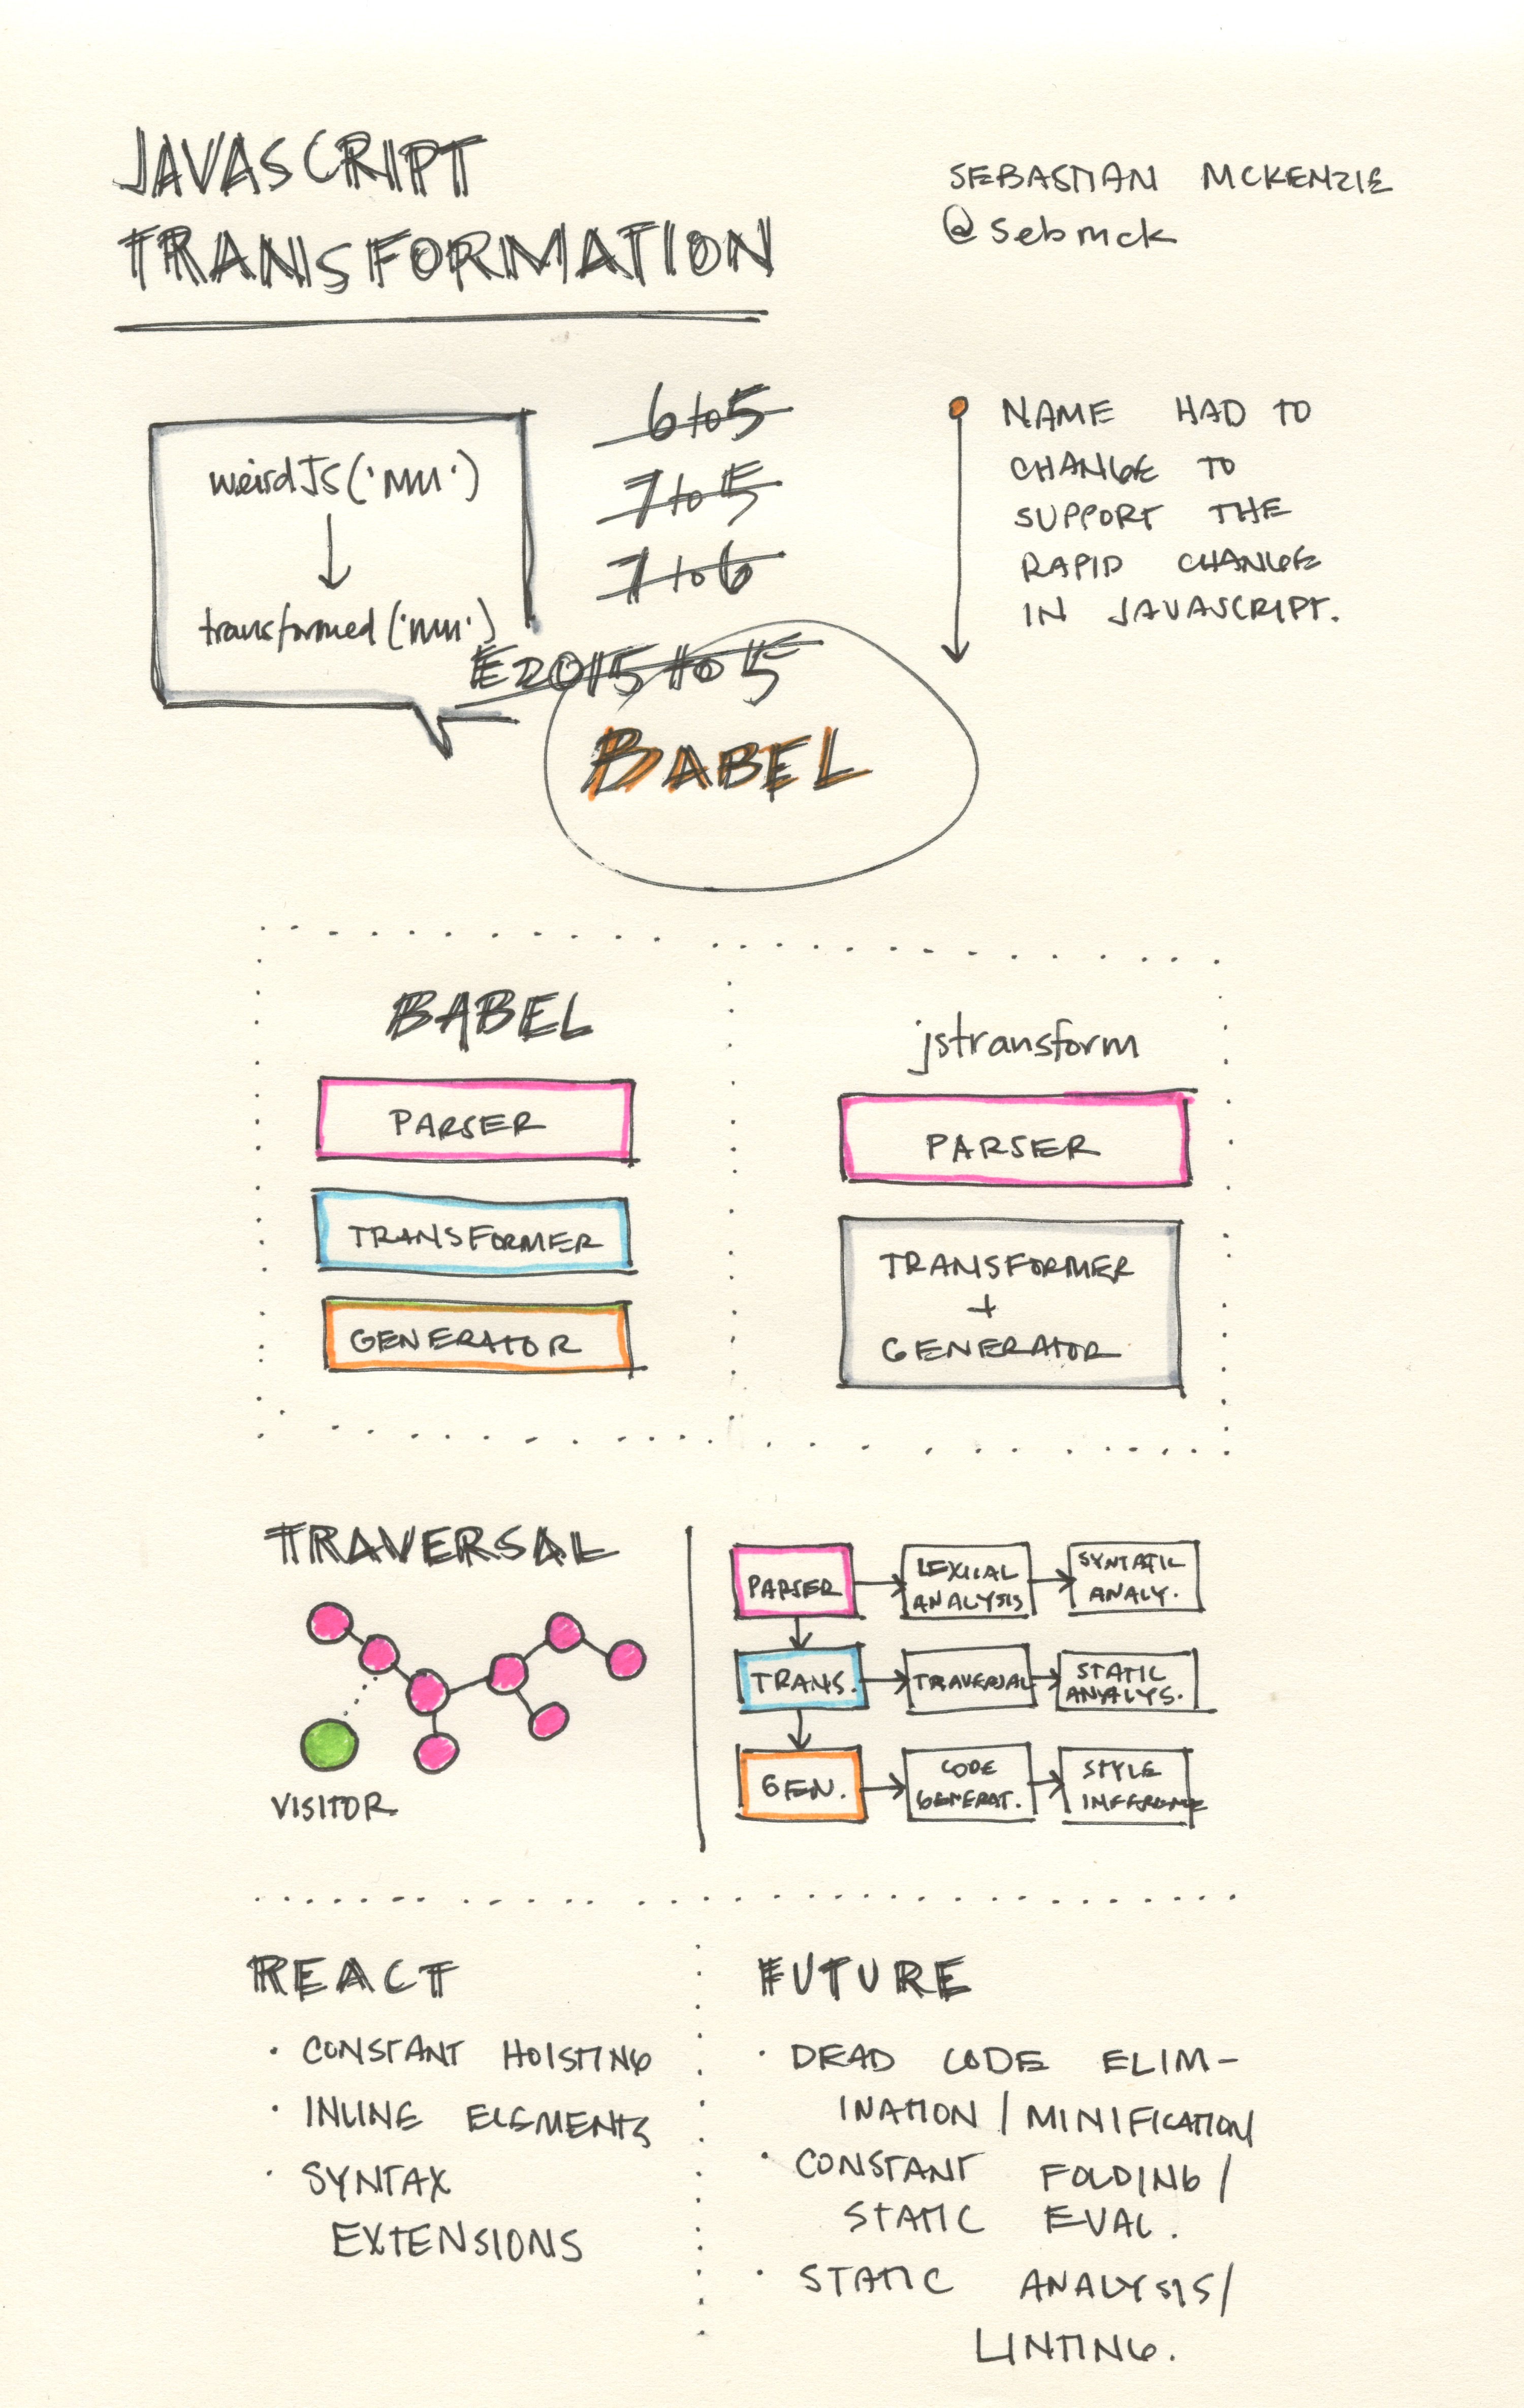 JAVASCRIPT
TRANSFORMATION
SEBASTIAN MCKENZIE
@sebmck
weirdJS('mm')
transformed('mm')
6to5
7to5
7to6
E2015 to 5
BABEL
NAME HAD TO
CHANGE TO
SUPPORT THE
RAPID CHANGE
IN JAVASCRIPT.
BABEL
PARSER
TRANSFORMER
GENERATOR
jstransform
PARSER
TRANSFORMER
+
GENERATOR
TRAVERSAL
VISITOR
PARSER
LEXICAL
ANALYSIS
SYNTATIC
ANALY.
TRANS.
TRAVERSAL
STATIC
ANALYS.
GEN.
CODE
GENERAT.
STYLE
INFERENCE
REACT
· CONSTANT HOISTING
· INLINE ELEMENTS
· SYNTAX
EXTENSIONS
FUTURE
· DEAD CODE ELIM-
INATION / MINIFICATION
· CONSTANT FOLDING /
STATIC EVAL.
· STATIC ANALYSIS /
LINTING.